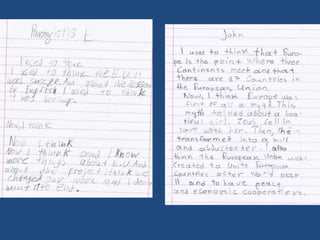 Panagiotis K
I used to think
I used to think the E.U. it
was
by English I used to think
it was boring.
Now, I think
Now I think
Now I think and I know
more things about E.U. and
about the project I think we
changed our work and I don't
want it to end.
John
I used to think that Euro-
pe is the point where three
Continents meet and that
there are 27 Countries in
the European Union.
Now, I think Europe was
first of all a myth. This
myth talked about a beau-
tiful girl. Zeus, fell in
love with her. Then, he
transformed into a
and abducted her. I also
think the European Union was
created to Unite European
countries after World War
II and to have peace
and economic cooperation.